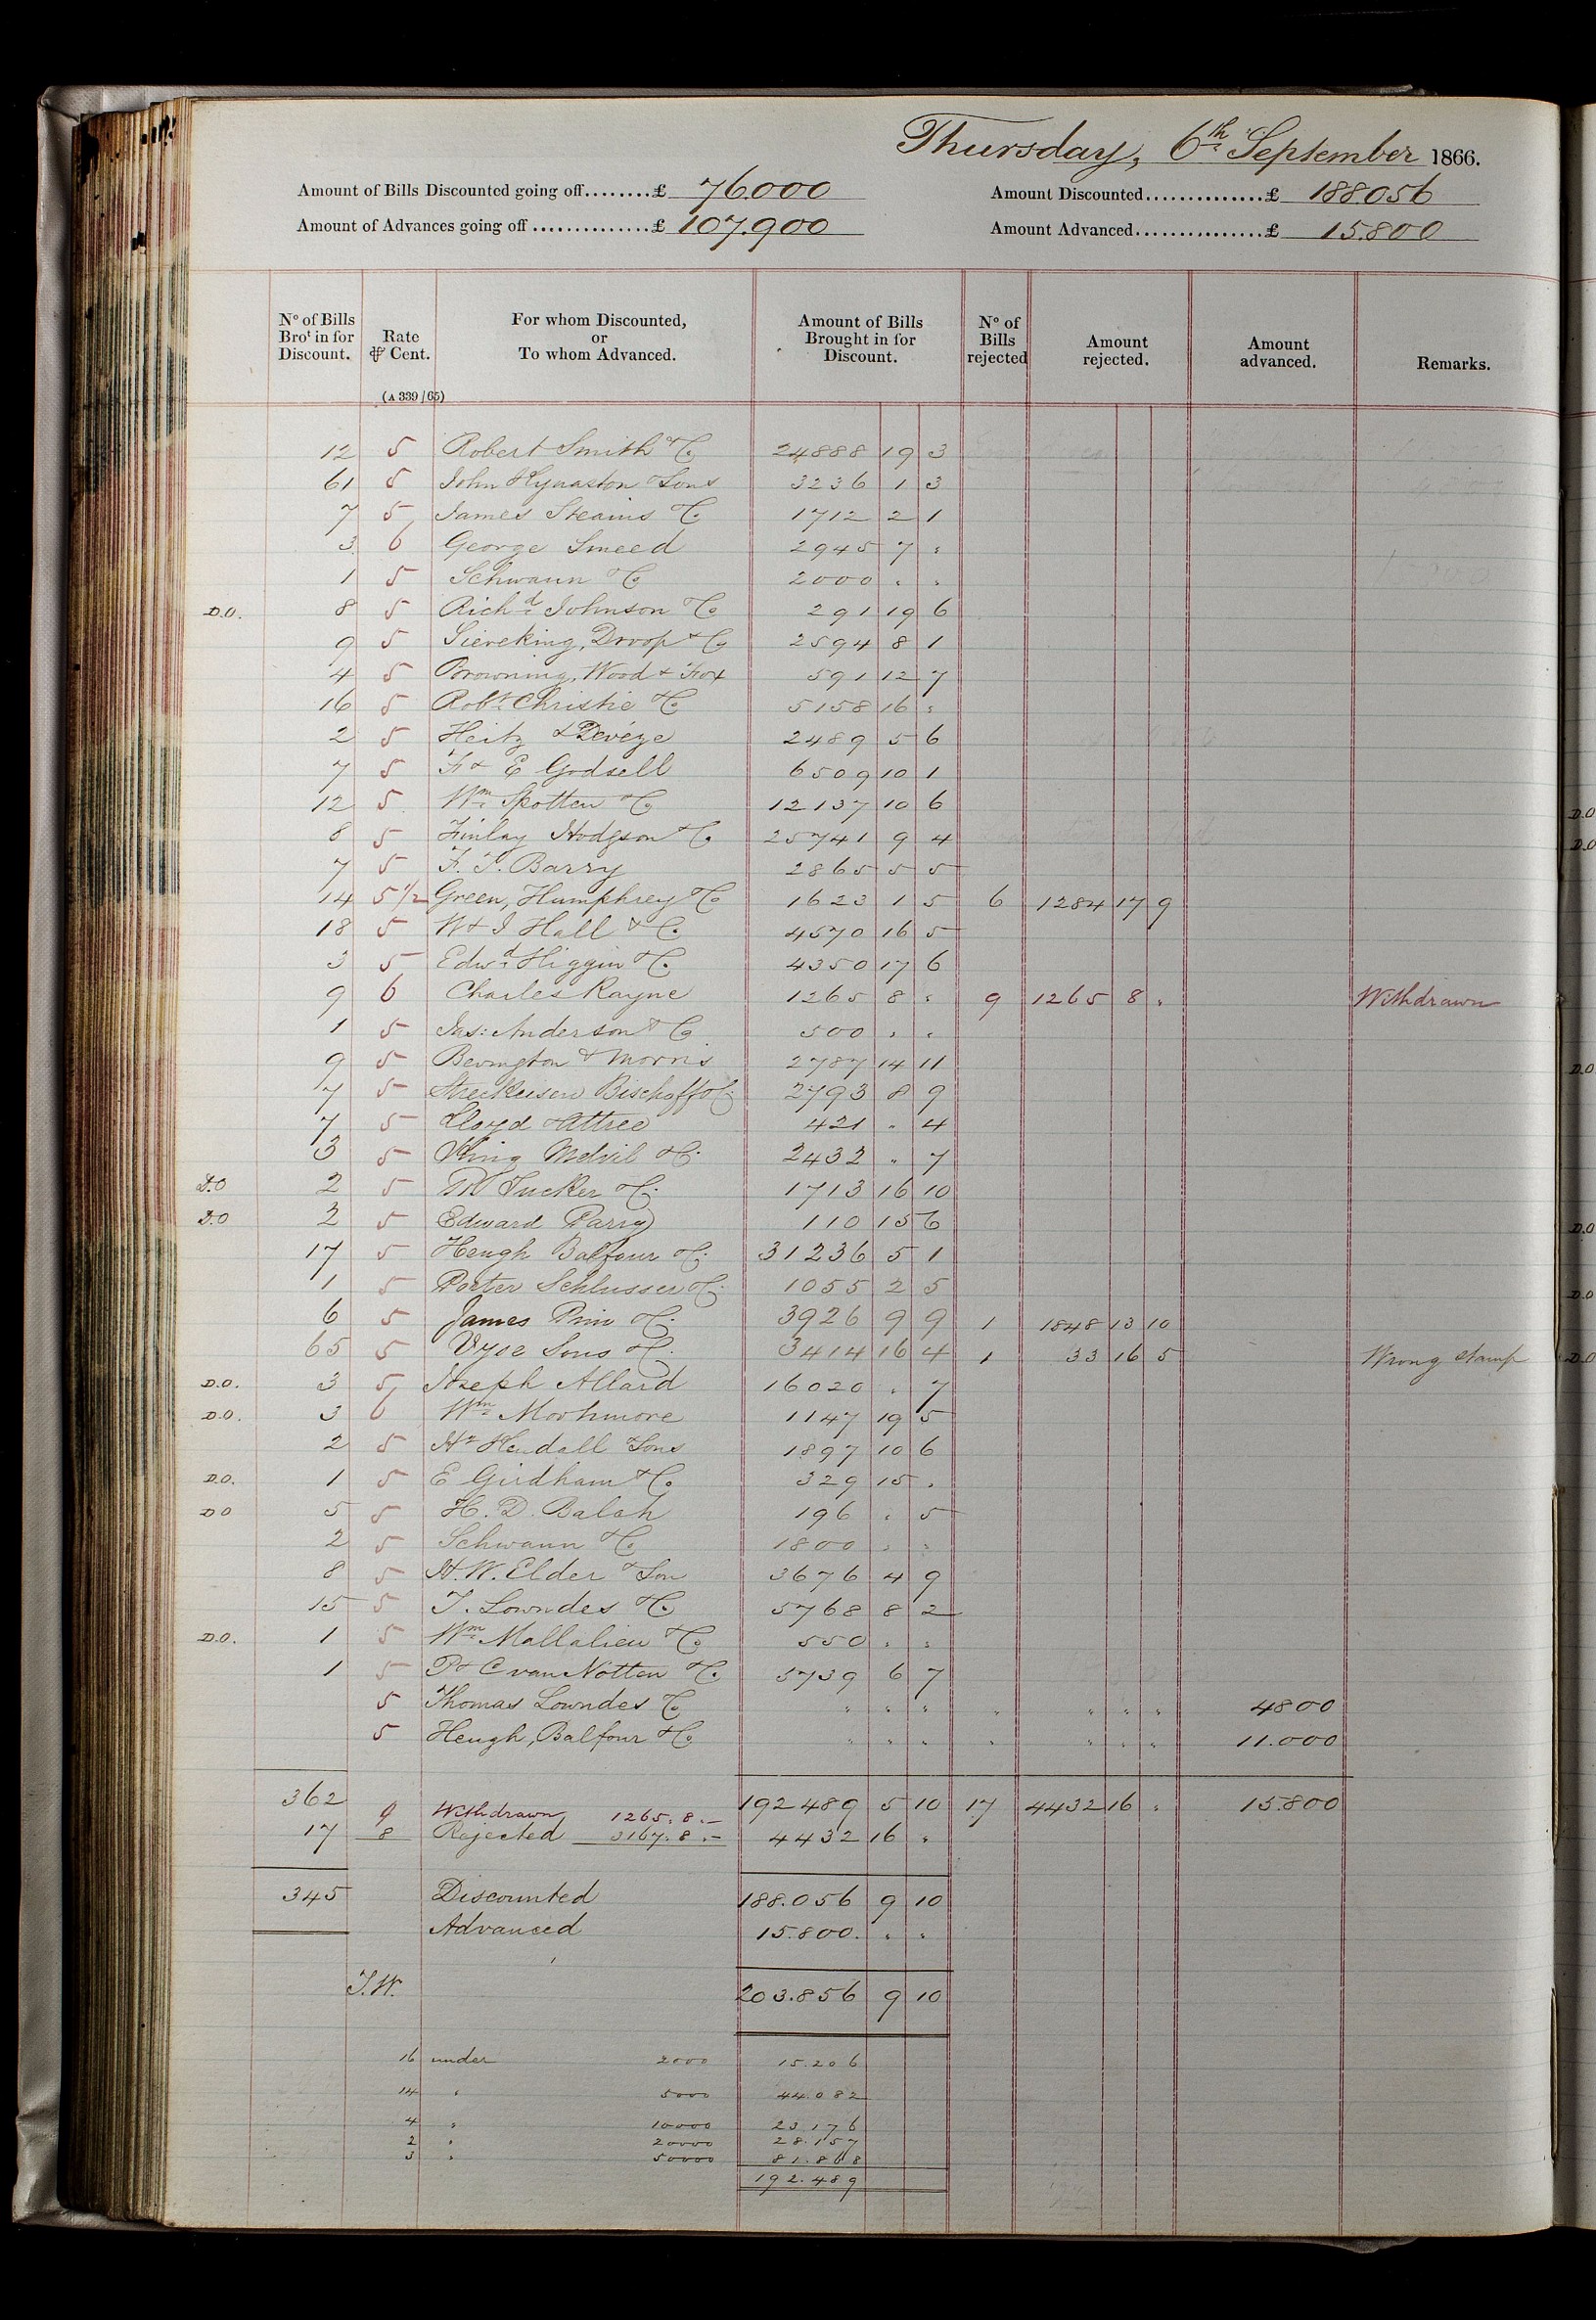 Thursday, 6th September 1866.
Amount of Bills Discounted going off........£ 76.000 Amount Discounted..............£ 188.056
Amount of Advances going off ..............£ 107.900 Amount Advanced...............£ 15.800
No of Bills Brot in for Discount. Rate ⅌ Cent. For whom Discounted, or To whom Advanced. Amount of Bills Brought in for Discount. No of Bills rejected Amount rejected. Amount advanced. Remarks.
(A 339/65)
12 5 Robert Smith & Co 24888 19 3
61 5 John Kynaston & Sons 3236 1 3
7 5 James Steains & Co 1712 2 1
3 6 George Smeed 2945 7 "
1 5 Schwann & Co 2000 " "
D.O. 8 5 Richd Johnson & Co 291 19 6
9 5 Sieveking, Droop & Co 2594 8 1
4 5 Browning, Wood & Fox 591 12 7
16 5 Robt Christie & Co 5158 16 "
2 5 Heitz & Devéze 2489 5 6
7 5 F & E Godsell 6509 10 1
12 5 Wm Spotten & Co 12137 10 6
8 5 Finlay Hodgson & Co 25741 9 4
7 5 F. T. Barry 2865 5 5
14 5 1/2 Green, Humphrey & Co 1623 1 5 6 1284 17 9
18 5 W & J Hall & Co 4570 16 5
3 5 Edwd Higgin & Co 4350 17 6
9 6 Charles Rayne 1265 8 " 9 1265 8 " Withdrawn
1 5 Jas: Anderson & Co 500 " "
9 5 Bevington & Morris 2787 14 11
7 5 Streckeisen Bischoff & Co 2793 8 9
7 5 Lloyd & Attree 421 " 4
3 5 King Melvil & Co 2432 " 7
D.O 2 5 Tucker & Co 1713 16 10
D.O 2 5 Edward Parry 110 15 6
17 5 Heugh Balfour & Co 31236 5 1
1 5 Porter Schlusser & Co 1055 2 5
6 5 James Pim & Co 3926 9 9 1 1848 13 10
65 5 Vyse Sons & Co 3414 16 4 1 33 16 5 Wrong stamp
D.O. 3 5 Joseph Allard 16020 " 7
D.O. 3 6 Wm Moshmore 1147 19 5
2 5 Hy Kendall & Sons 1897 10 6
D.O. 1 5 E Girdham & Co 329 15 "
D O 5 5 H. D. Balah 196 " 5
2 5 Schwann & Co 1800 " "
8 5 H. W. Elder & Son 3676 4 9
15 5 T. Lowndes & Co 5768 8 2
D.O. 1 5 Wm Mallalieu & Co 550 " "
1 5 P & C van Notten & Co 5739 6 7
5 Thomas Lowndes & Co " " " " " " " 4800
5 Heugh, Balfour & Co " " " " " " " 11.000
362 192489 5 10 17 4432 16 " 15.800
9 Withdrawn 1265. 8. –
17 8 Rejected 3167. 8. – 4432 16 "
345 Discounted 188.056 9 10
Advanced 15.800. " "
T.W. 203.856 9 10
16 under 2000 15.206
14 " 5000 44.082
4 " 10000 23.176
2 " 20000 28.157
3 " 50000 81.868
192.489